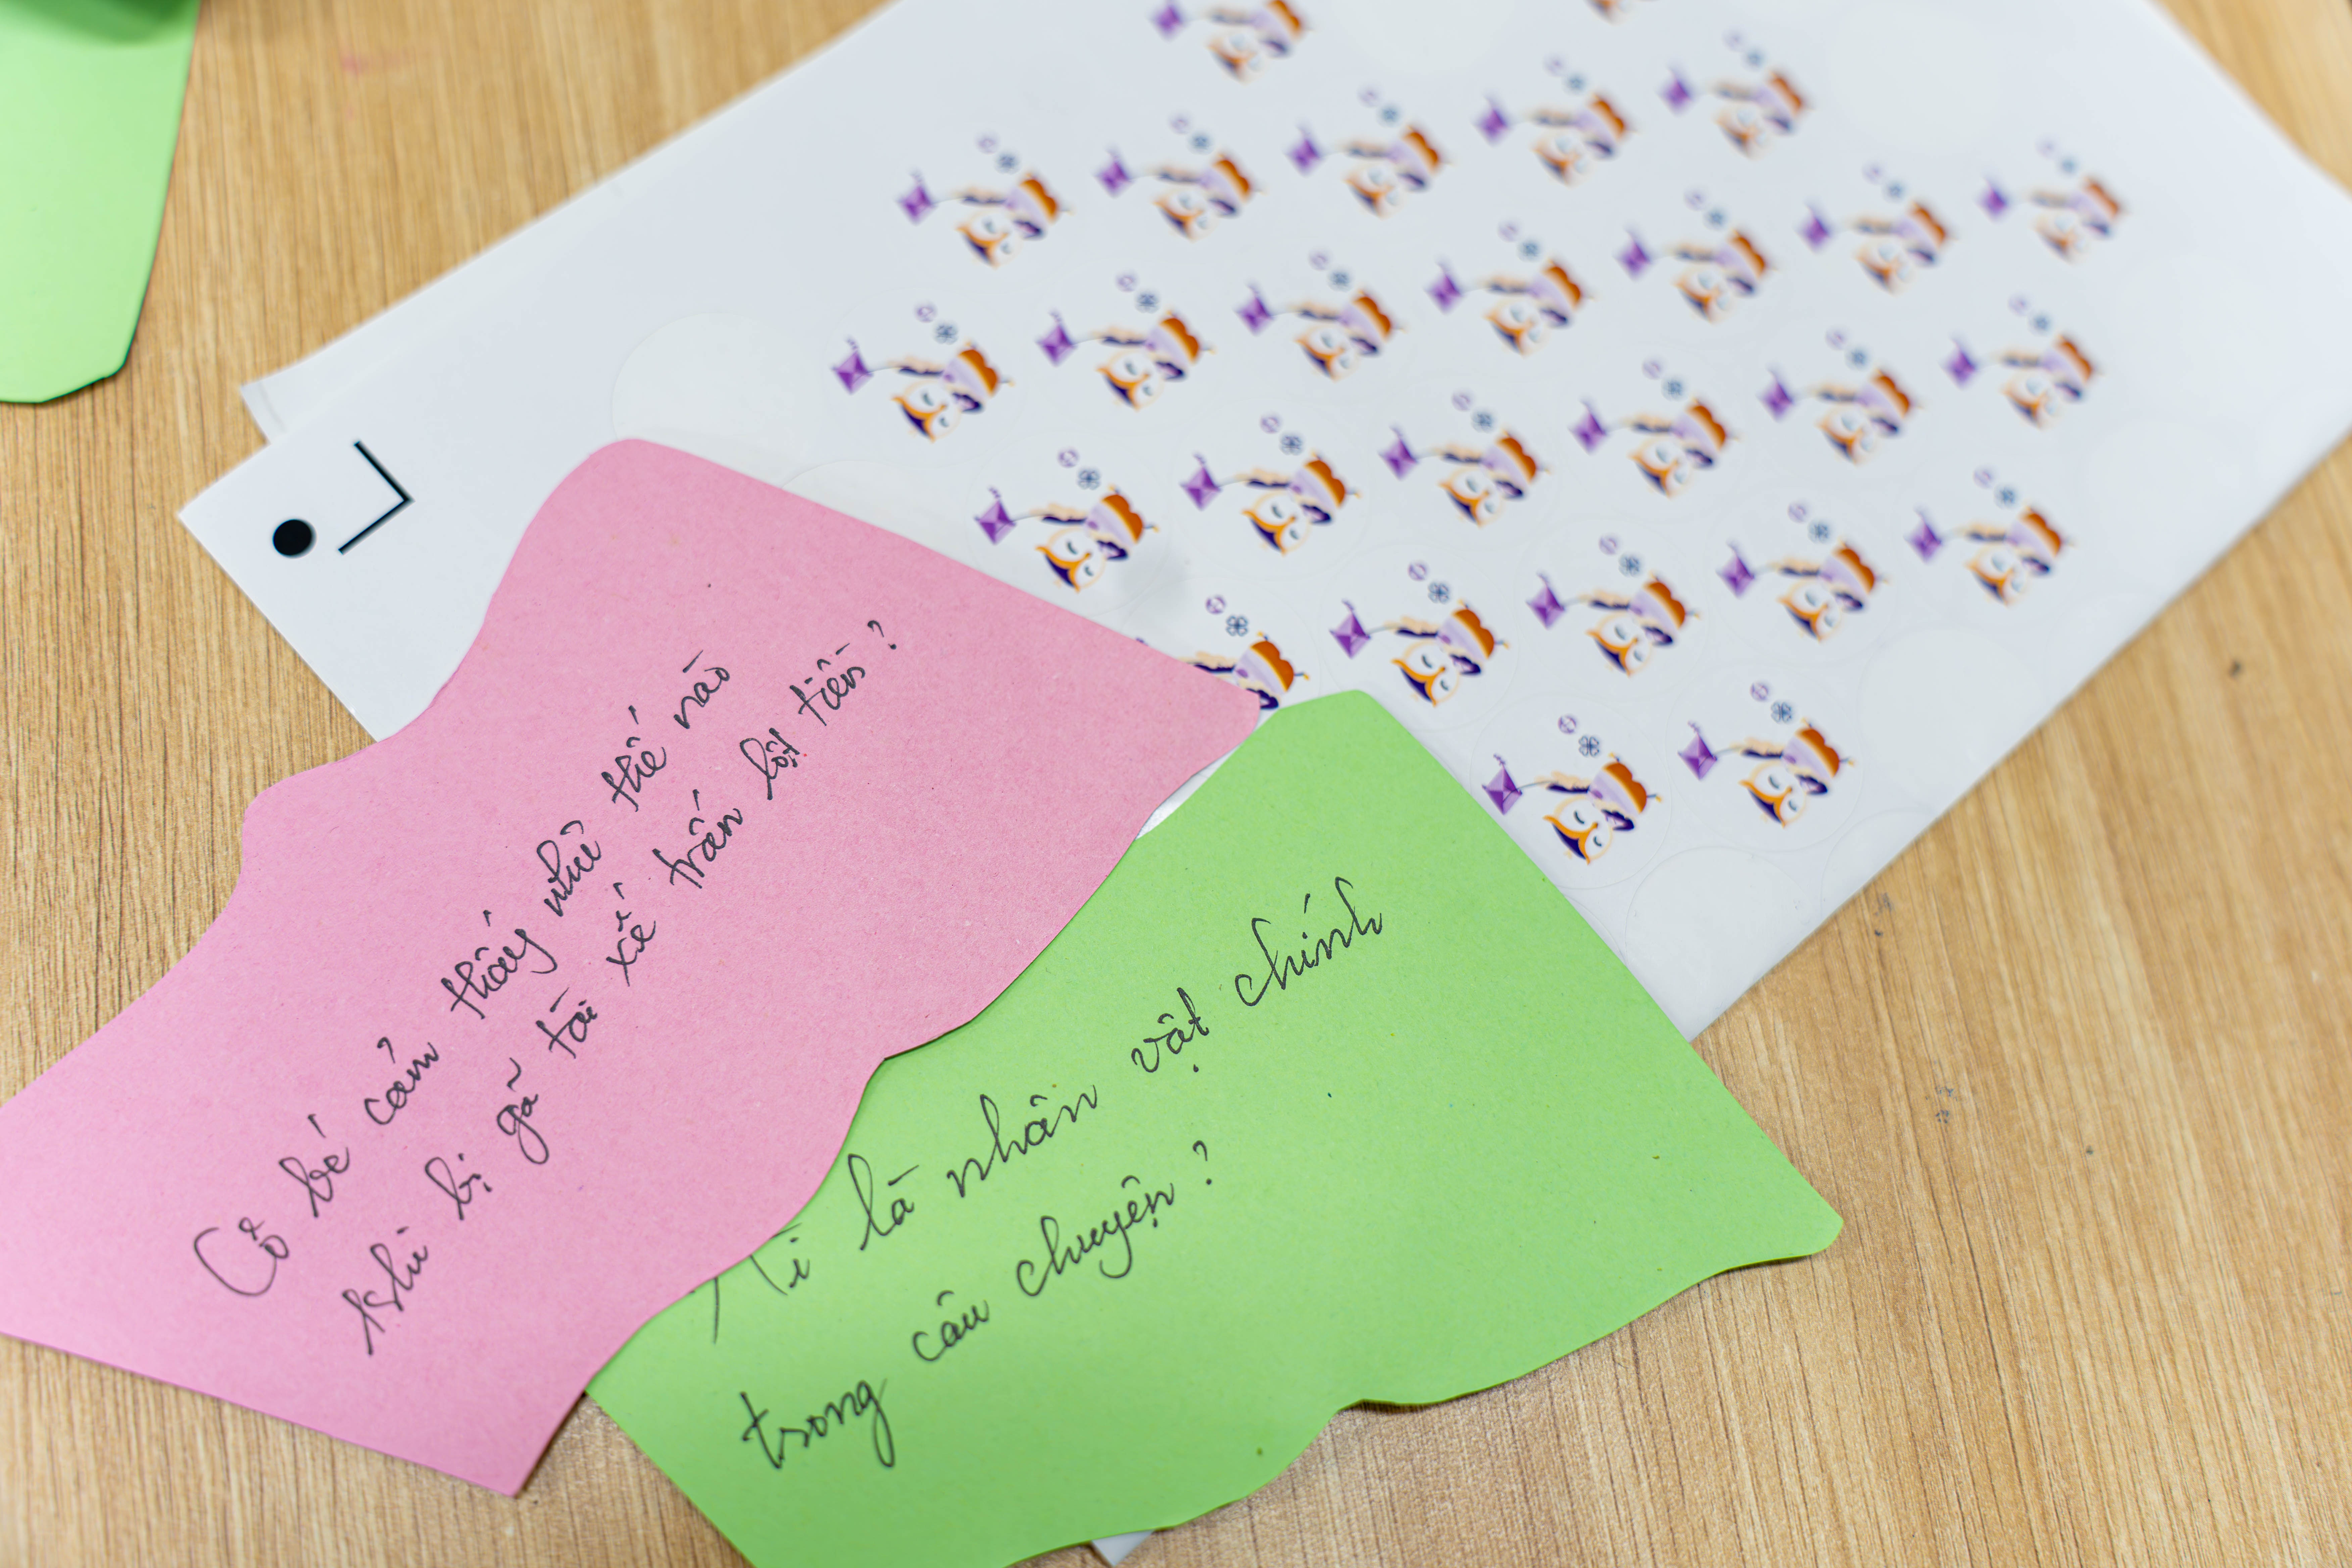 Cô bé cảm thấy như thế nào
khi bị gã tài xế trấn lột tiền?
Ai là nhân vật chính
trong câu chuyện?